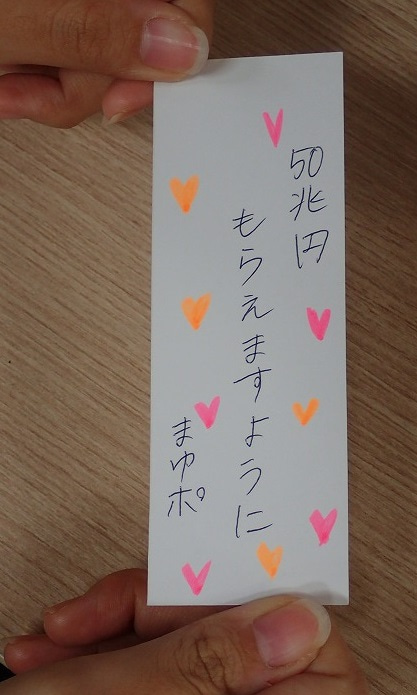 50兆円
もらえますように
まゆポ